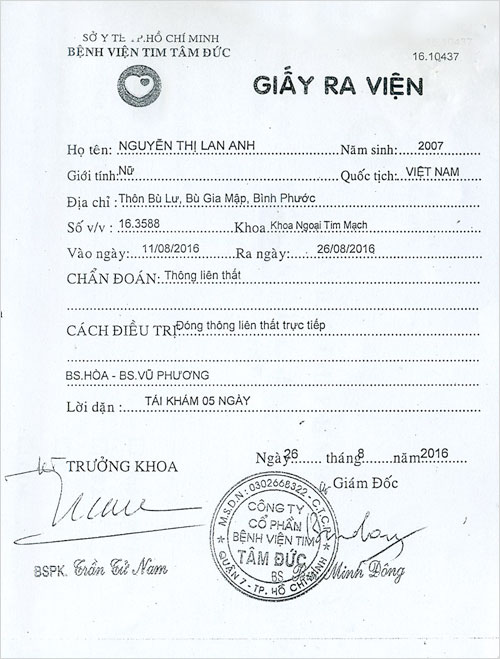 SỞ Y TẾ TP.HỒ CHÍ MINH
BỆNH VIỆN TIM TÂM ĐỨC
16.10437
GIẤY RA VIỆN
Họ tên: NGUYỄN THỊ LAN ANH Năm sinh: 2007
Giới tính: Nữ Quốc tịch: VIỆT NAM
Địa chỉ : Thôn Bù Lư, Bù Gia Mập, Bình Phước
Số v/v : 16.3588 Khoa Khoa Ngoại Tim Mạch
Vào ngày: 11/08/2016 Ra ngày: 26/08/2016
CHẨN ĐOÁN: Thông liên thất
CÁCH ĐIỀU TRỊ Đóng thông liên thất trực tiếp
BS.HÒA - BS.VŨ PHƯƠNG
Lời dặn : TÁI KHÁM 05 NGÀY
Ngày 26 tháng 8 năm 2016
TRƯỞNG KHOA
Giám Đốc
M.S.D.N : 0302668322 - C.T.C.P
CÔNG TY
CỔ PHẦN
BỆNH VIỆN TIM
TÂM ĐỨC
QUẬN 7 - TP. HỒ CHÍ MINH
BSPK. Trần Tử Nam
BS. Minh Đông